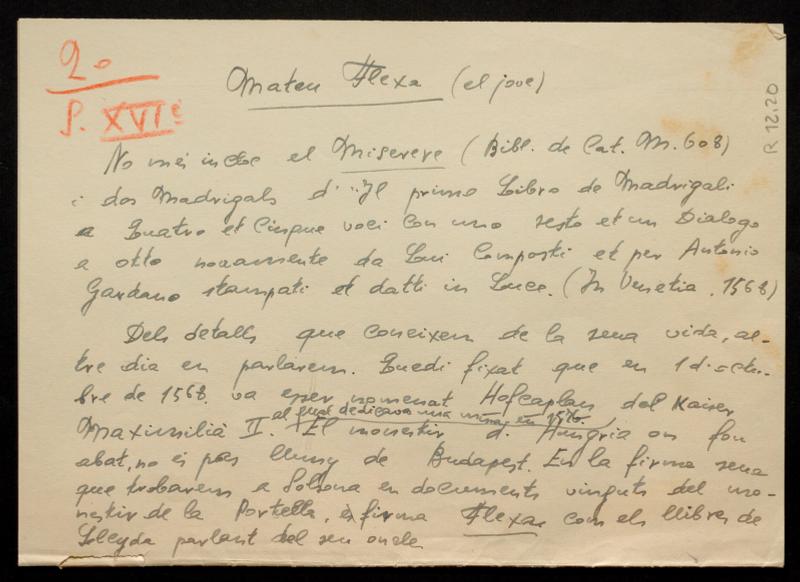 2º
S. XVIè
R 12.20
Mateu Flexa (el jove)
No més incloc el Miserere (Bibl. de Cat. M. 608)
i dos Madrigals d' "Il primo Libro de Madrigali
a Quatro et Cinque voci con uno sesto et un Dialogo
a otto novamente da Lui Composti et per Antonio
Gardano stampati et datti in Luce. (In Venetia, 1568)
Dels detalls que coneixem de la seva vida, al-
tre dia en parlarem. Quedi fixat que en 1 d'octu-
bre de 1568 va esser nomenat Hofcaplan del Kaiser
al qual dedicava una missa en
Maximilià II. El monestir d'Hungria on fou
abat, no és pas lluny de Budapest. En la firma seva
que trobarem a Solsona en documents vinguts del mo-
nestir de la Portella, firma Flexa com els llibres de
Lleyda parlant del seu oncle